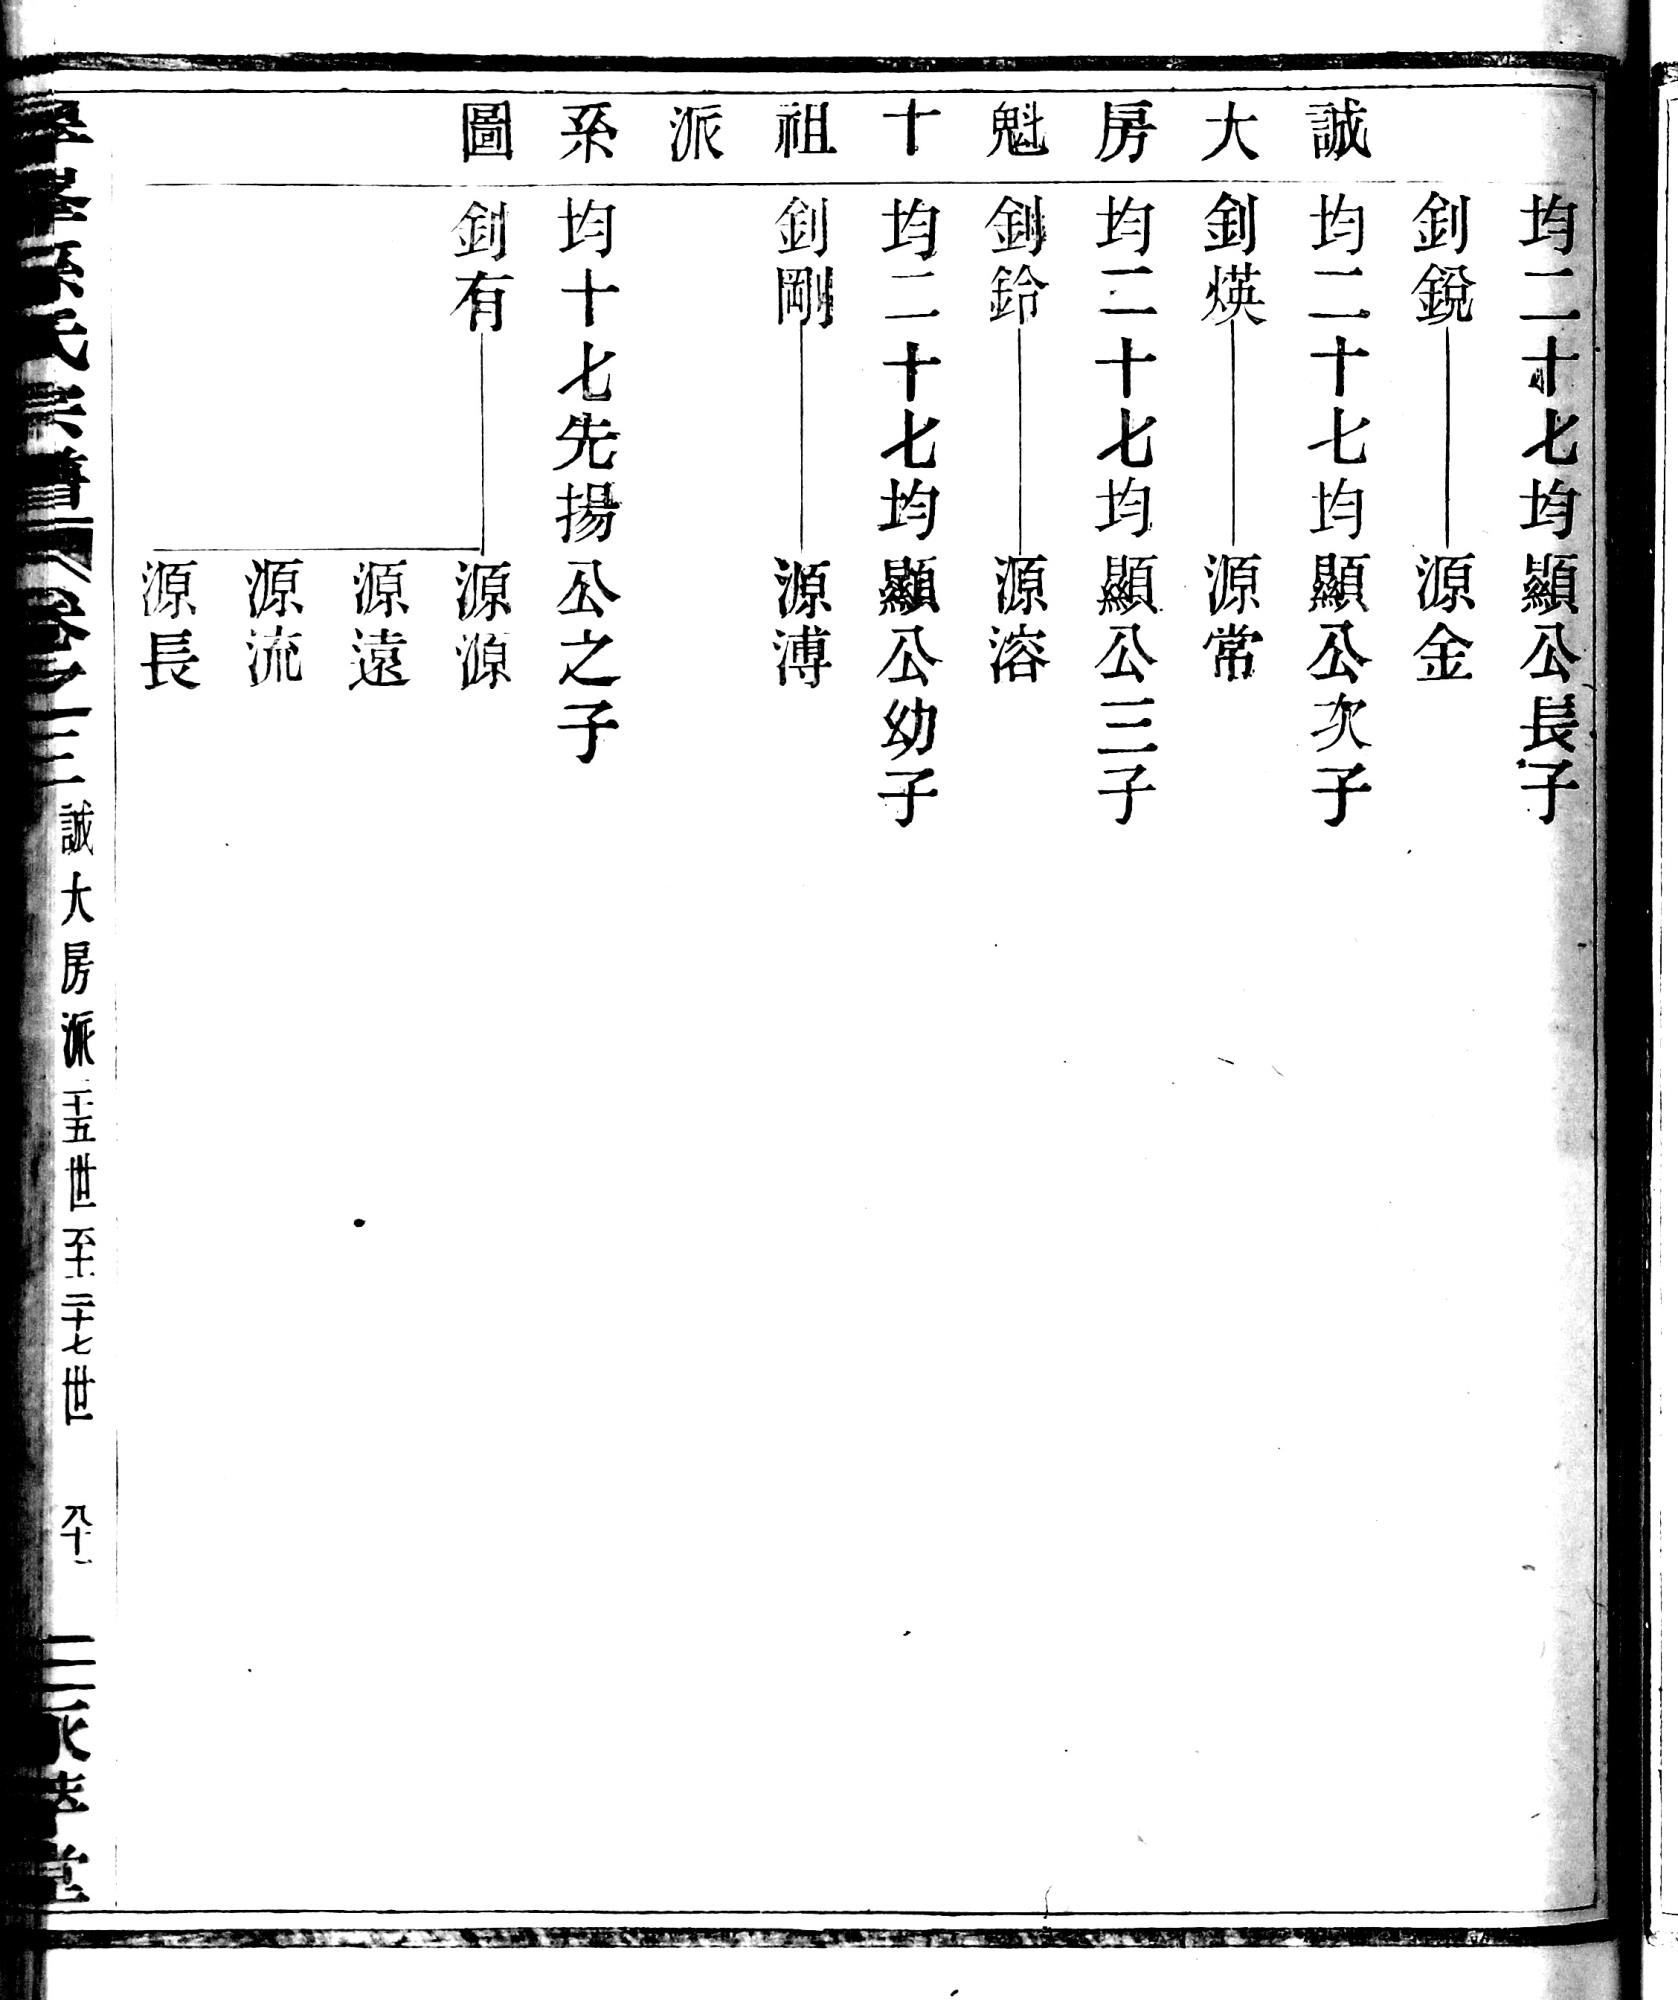 誠大房魁十祖派系圖
均二十七均顯公長子
釗銳 源金
均二十七均顯公次子
釗煐 源常
均二十七均顯公三子
釗鈴 源溶
均二十七均顯公幼子
釗剛 源溥
均十七先揚公之子
釗有 源源
源遠
源流
源長
氏宗譜 卷之 誠大房派 二十五世至二十七世 八十一 堂